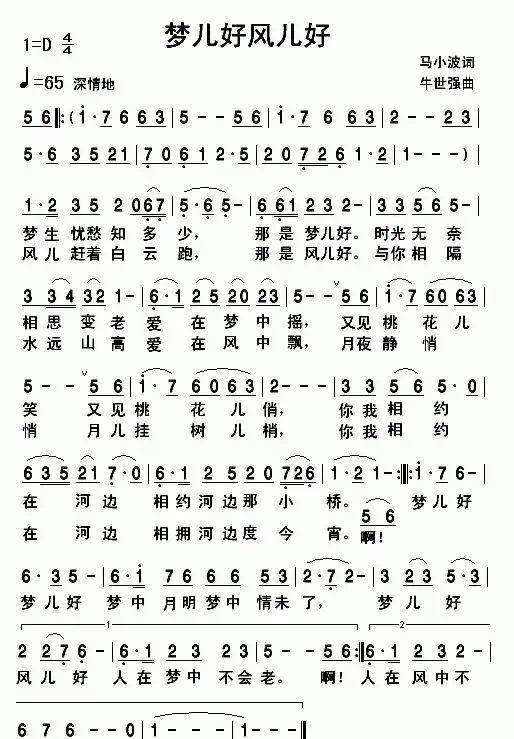 梦儿好风儿好
1=D 4/4
马小波词
♩=65 深情地
牛世强曲
5 6 ‖: ( i · 7 6 6 3 | 5 - - 5 6 | i · 7 6 6 3 | 2 - - 2 3 |
5 · 6 3 5 2 1 | 7 0 6 1 2 · 5 | 2 0 7 2 6 1 · 2 | 1 - - - ) |
1 · 2 3 5 2 0 6 7 | 5 · 6 5 - | 6 6 1 2 3 2 - | 3 3 5 6 5 - |
梦生忧愁知多少， 那是梦儿好。时光无奈
风儿赶着白云跑， 那是风儿好。与你相隔
3 3 4 3 2 1 - | 6 · 1 2 5 2 0 2 3 | 5 - - 5 6 | i · 7 6 0 6 3 |
相思变老爱在梦中摇， 又见桃花儿
水远山高爱在风中飘， 月夜静悄
5 - - 5 6 | i · 7 6 0 6 3 | 2 - - - | 3 3 5 6 5 · 0 |
笑 又见桃花儿俏， 你我相约
悄 月儿挂树儿梢， 你我相约
6 3 5 2 1 7 · 0 | 6 · 1 2 5 2 0 7 2 6 | 1 · 2 1 - :‖: i · 7 6 - |
在河边相约河边那小桥。 梦儿好
5 6
在河边相拥河边度今宵。啊！
6 · 3 5 - | 6 · i 7 6 6 6 | 5 3 3 2 · 7 2 | 3 2 3 5 · 3 |
梦儿好梦中月明梦中情未了， 梦儿好
1 2
2 2 7 6 - | 6 · 1 2 3 2 3 | 5 - - 5 6 :‖ 6 · 1 2 3 2 |
风儿好人在梦中不会老。啊！人在风中不
6 7 6 - | 1 - 1 - | 1 - - - ‖